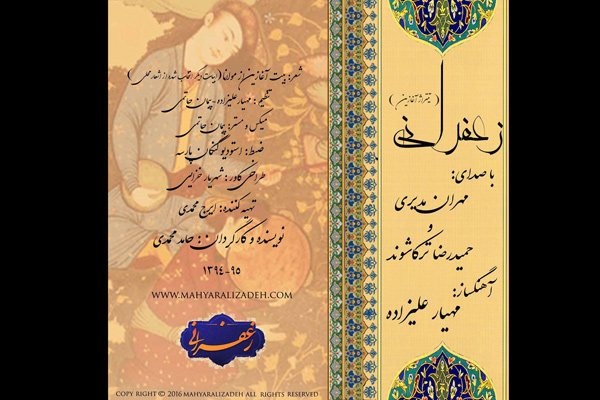 زعفرانی
(تیتراژ آغازین)
با صدای:
مهران مدیری
و
حمیدرضا ترکاشوند
آهنگساز:
مهیار علیزاده
شعر: بیت آغازین از مولانا (ابیات دیگر انتخاب شده از اشعار محلی)
تنظیم: مهیار علیزاده - پیمان حاتمی
میکس و مستر: پیمان حاتمی
ضبط: استودیو کنگان پارسه
طراحی کاور: شهریار خزایی
تهیه کننده: ایرج محمدی
نویسنده و کارگردان: حامد محمدی
۱۳۹۴-۹۵
WWW.MAHYARALIZADEH.COM
زعفرانی
COPY RIGHT © 2016 MAHYARALIZADEH ALL RIGHTS RESERVED